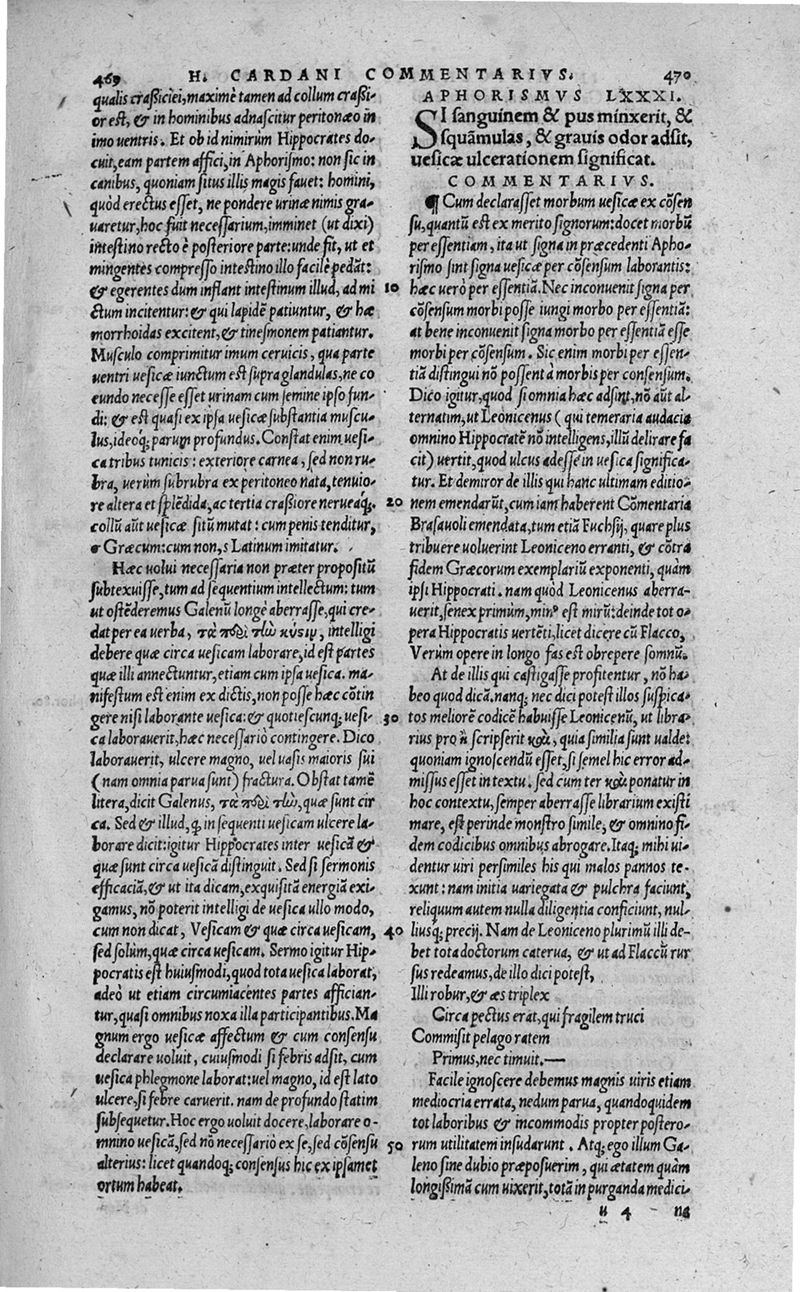 469 H. CARDANI COMMENTARIVS. 470
qualis craßiciei, maximè tamen ad collum craßi-
or est, & in hominibus adnascitur peritonæo in
imo uentris. Et ob id nimirum Hippocrates do-
cuit, eam partem affici, in Aphorismo: non sic in
canibus, quoniam situs illis magis fauet: homini,
quòd erectus esset, ne pondere urinæ nimis gra-
uaretur, hoc fuit necessarium, imminet (ut dixi)
intestino recto è posteriore parte: unde fit, ut et
mingentes compresso intestino illo facilè pedāt:
& egerentes dum inflant intestinum illud, ad mi
ctum incitentur: & qui lapidē patiuntur, & hæ
morrhoidas excitent, & tinesmonem patiantur.
Musculo comprimitur imum ceruicis, qua parte
uentri uesicæ iunctum est supra glandulas, ne co
eundo necesse esset urinam cum semine ipso fun-
di: & est quasi ex ipsa uesicæ substantia muscu-
lus, ideoq; parum profundus. Constat enim uesi-
ca tribus tunicis: exteriore carnea, sed non ru-
bra, uerùm subrubra ex peritoneo nata, tenuio-
re altera et splēdida, ac tertia craßiore nerueaq́;.
collū aūt uesicæ sitū mutat: cum penis tenditur,
Græcum: cum non, s Latinum imitatur.
Hæc uolui necessaria non præter propositū
subtexuisse, tum ad sequentium intellectum: tum
ut ostēderemus Galenū longè aberrasse, qui cre-
dat per ea uerba, τὰ πϵρὶ τἰω κύσιμ, intelligi
debere quæ circa uesicam laborare, id est partes
quæ illi annectuntur, etiam cum ipsa uesica. ma-
nifestum est enim ex dictis, non posse hæc cōtin
gere nisi laborante uesica: & quotiescunq; uesi-
ca laborauerit, hæc necessariò contingere. Dico
laborauerit, ulcere magno, uel uasis maioris sui
(nam omnia parua sunt) fractura. Obstat tamē
litera, dicit Galenus, τὰ πϵρὶ τἰω, quæ sunt cir
ca. Sed & illud, q, in sequenti uesicam ulcere la-
borare dicit: igitur Hippocrates inter uesicā &
quæ sunt circa uesicā distinguit. Sed si sermonis
efficaciā, & ut ita dicam, exquisitā energiā exi-
gamus, nō poterit intelligi de uesica ullo modo,
cum non dicat, Vesicam & quæ circa uesicam,
sed solùm, quæ circa uesicam. Sermo igitur Hip-
pocratis est huiusmodi, quod tota uesica laborat,
adeò ut etiam circumiacentes partes affician-
tur, quasi omnibus noxa illa participantibus. Ma
gnum ergo uesicæ affectum & cum consensu
declarare uoluit, cuiusmodi si febris adsit, cum
uesica phlegmone laborat: uel magno, id est lato
ulcere, si febre caruerit. nam de profundo statim
subsequetur. Hoc ergo uoluit docere, laborare o-
mnino uesicā, sed nō necessariò ex se, sed cōsensu
alterius: licet quandoq; consensus hic ex ipsamet
ortum habeat.
APHORISMVS LXXXI.
SI sanguinem & pus minxerit, &
squámulas, & grauis odor adsit,
uesicæ ulcerationem significat.
COMMENTARIVS.
¶ Cum declarasset morbum uesicæ ex cōsen
su, quantū est ex merito signorum: docet morbū
per essentiam, ita ut signa in præcedenti Apho-
rismo sint signa uesicæ per cōsensum laborantis:
10 hæc uerò per essentiā. Nec inconuenit signa per
cōsensum morbi posse iungi morbo per essentiā:
at bene inconuenit signa morbo per essentiā esse
morbi per cōsensum. Sic enim morbi per essen-
tiā distingui nō possent à morbis per consensum.
Dico igitur, quod si omnia hæc adsint, nō aūt al
ternatim, ut Leonicenus (qui temeraria audacia
omnino Hippocratē nō intelligens, illū delirare fa
cit) uertit, quod ulcus adesse in uesica significa-
tur. Et demiror de illis qui hanc ultimam editio-
20 nem emendarūt, cum iam haberent Cōmentaria
Brasauoli emendata, tum etiā Fuchsij, quare plus
tribuere uoluerint Leoniceno erranti, & cōtra
fidem Græcorum exemplariū exponenti, quàm
ipsi Hippocrati. nam quòd Leonicenus aberra-
uerit, senex primùm, minꝰ est mirū: deinde tot o-
pera Hippocratis uertēti, licet dicere cū Flacco,
Verùm opere in longo fas est obrepere somnū.
At de illis qui castigasse profitentur, nō ha-
beo quod dicā. nanq; nec dici potest illos suspica-
30 tos meliorē codicē habuisse Leonicenū, ut libra-
rius pro ἢ scripserit καὶ, quia similia sunt ualde:
quoniam ignoscendū esset, si semel hic error ad-
missus esset in textu. sed cum ter καὶ ponatur in
hoc contextu, semper aberrasse librarium existi
mare, est perinde monstro simile, & omnino fi-
dem codicibus omnibus abrogare. Itaq; mihi ui-
dentur uiri persimiles his qui malos pannos te-
xunt: nam initia uariegata & pulchra faciunt,
reliquum autem nulla diligentia conficiunt, nul-
40 liusq; precij. Nam de Leoniceno plurimū illi de-
bet tota doctorum caterua, & ut ad Flaccū rur
sus redeamus, de illo dici potest,
Illi robur, & æs triplex
Circa pectus erat, qui fragilem truci
Commisit pelago ratem
Primus, nec timuit.—
Facile ignoscere debemus magnis uiris etiam
mediocria errata, nedum parua, quandoquidem
tot laboribus & incommodis propter postero-
50 rum utilitatem insudarunt. Atq; ego illum Ga-
leno sine dubio præposuerim, qui ætatem quàm
longißimā cum uixerit, totā in purganda medici-
u 4 na